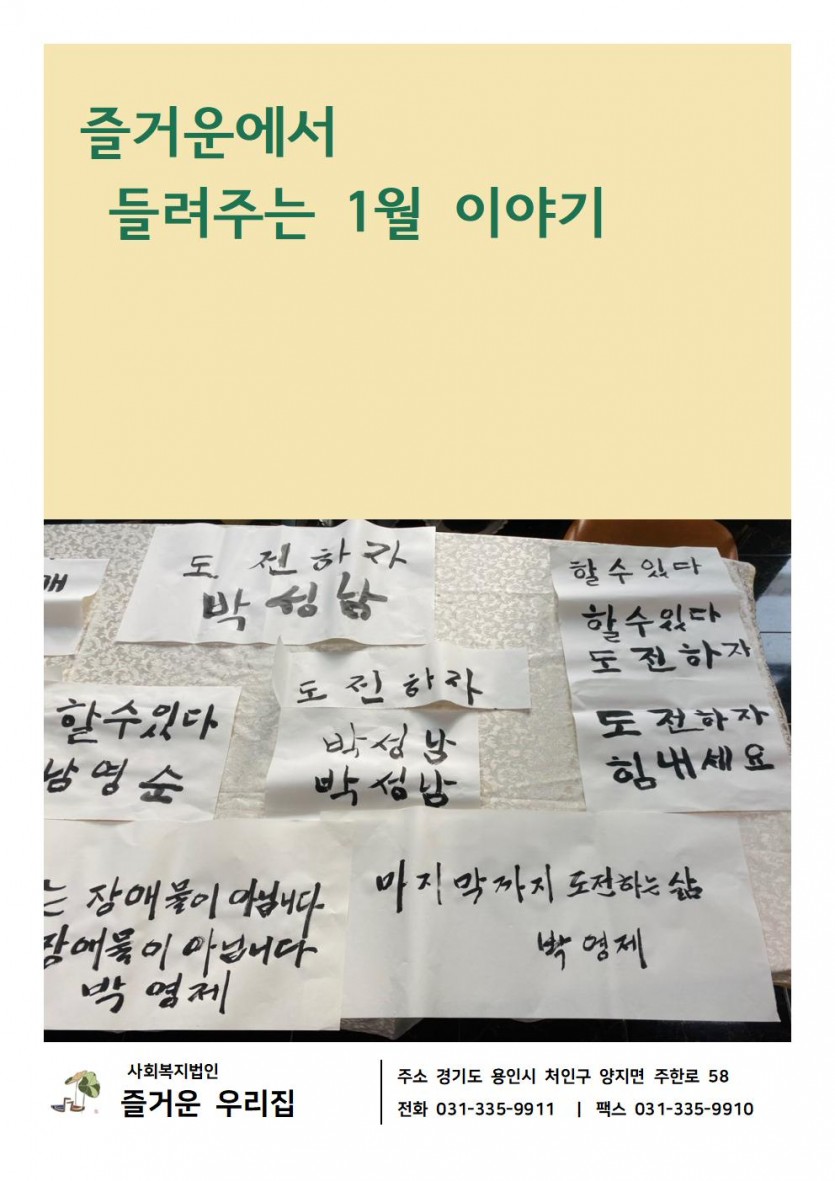 즐거운에서
들려주는 1월 이야기
도전하자
박성남
할수있다
할수있다
도전하자
도전하자
힘내세요
도전하자
박성남
박성남
할수있다
남영순
장애물이 아닙니다
장애물이 아닙니다
박영제
마지막까지 도전하는 삶
박영제
사회복지법인
즐거운 우리집
주소 경기도 용인시 처인구 양지면 주한로 58
전화 031-335-9911 | 팩스 031-335-9910